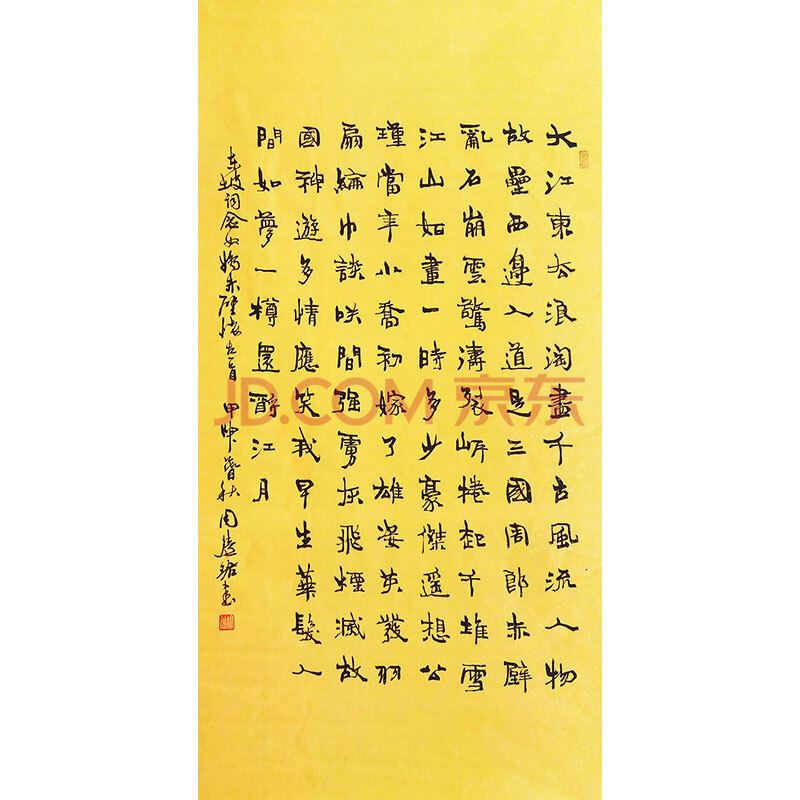 大江東去浪淘盡千古風流人物
故壘西邊人道是三國周郎赤壁
亂石崩雲驚濤裂岸捲起千堆雪
江山如畫一時多少豪傑遥想公
瑾當年小喬初嫁了雄姿英發羽
扇綸巾談咲間强虜灰飛煙滅故
國神遊多情應笑我早生華髮人
間如夢一樽還酹江月
東坡詞念奴嬌赤壁懷古一首 甲申 秋 周 書
JD.COM 京东